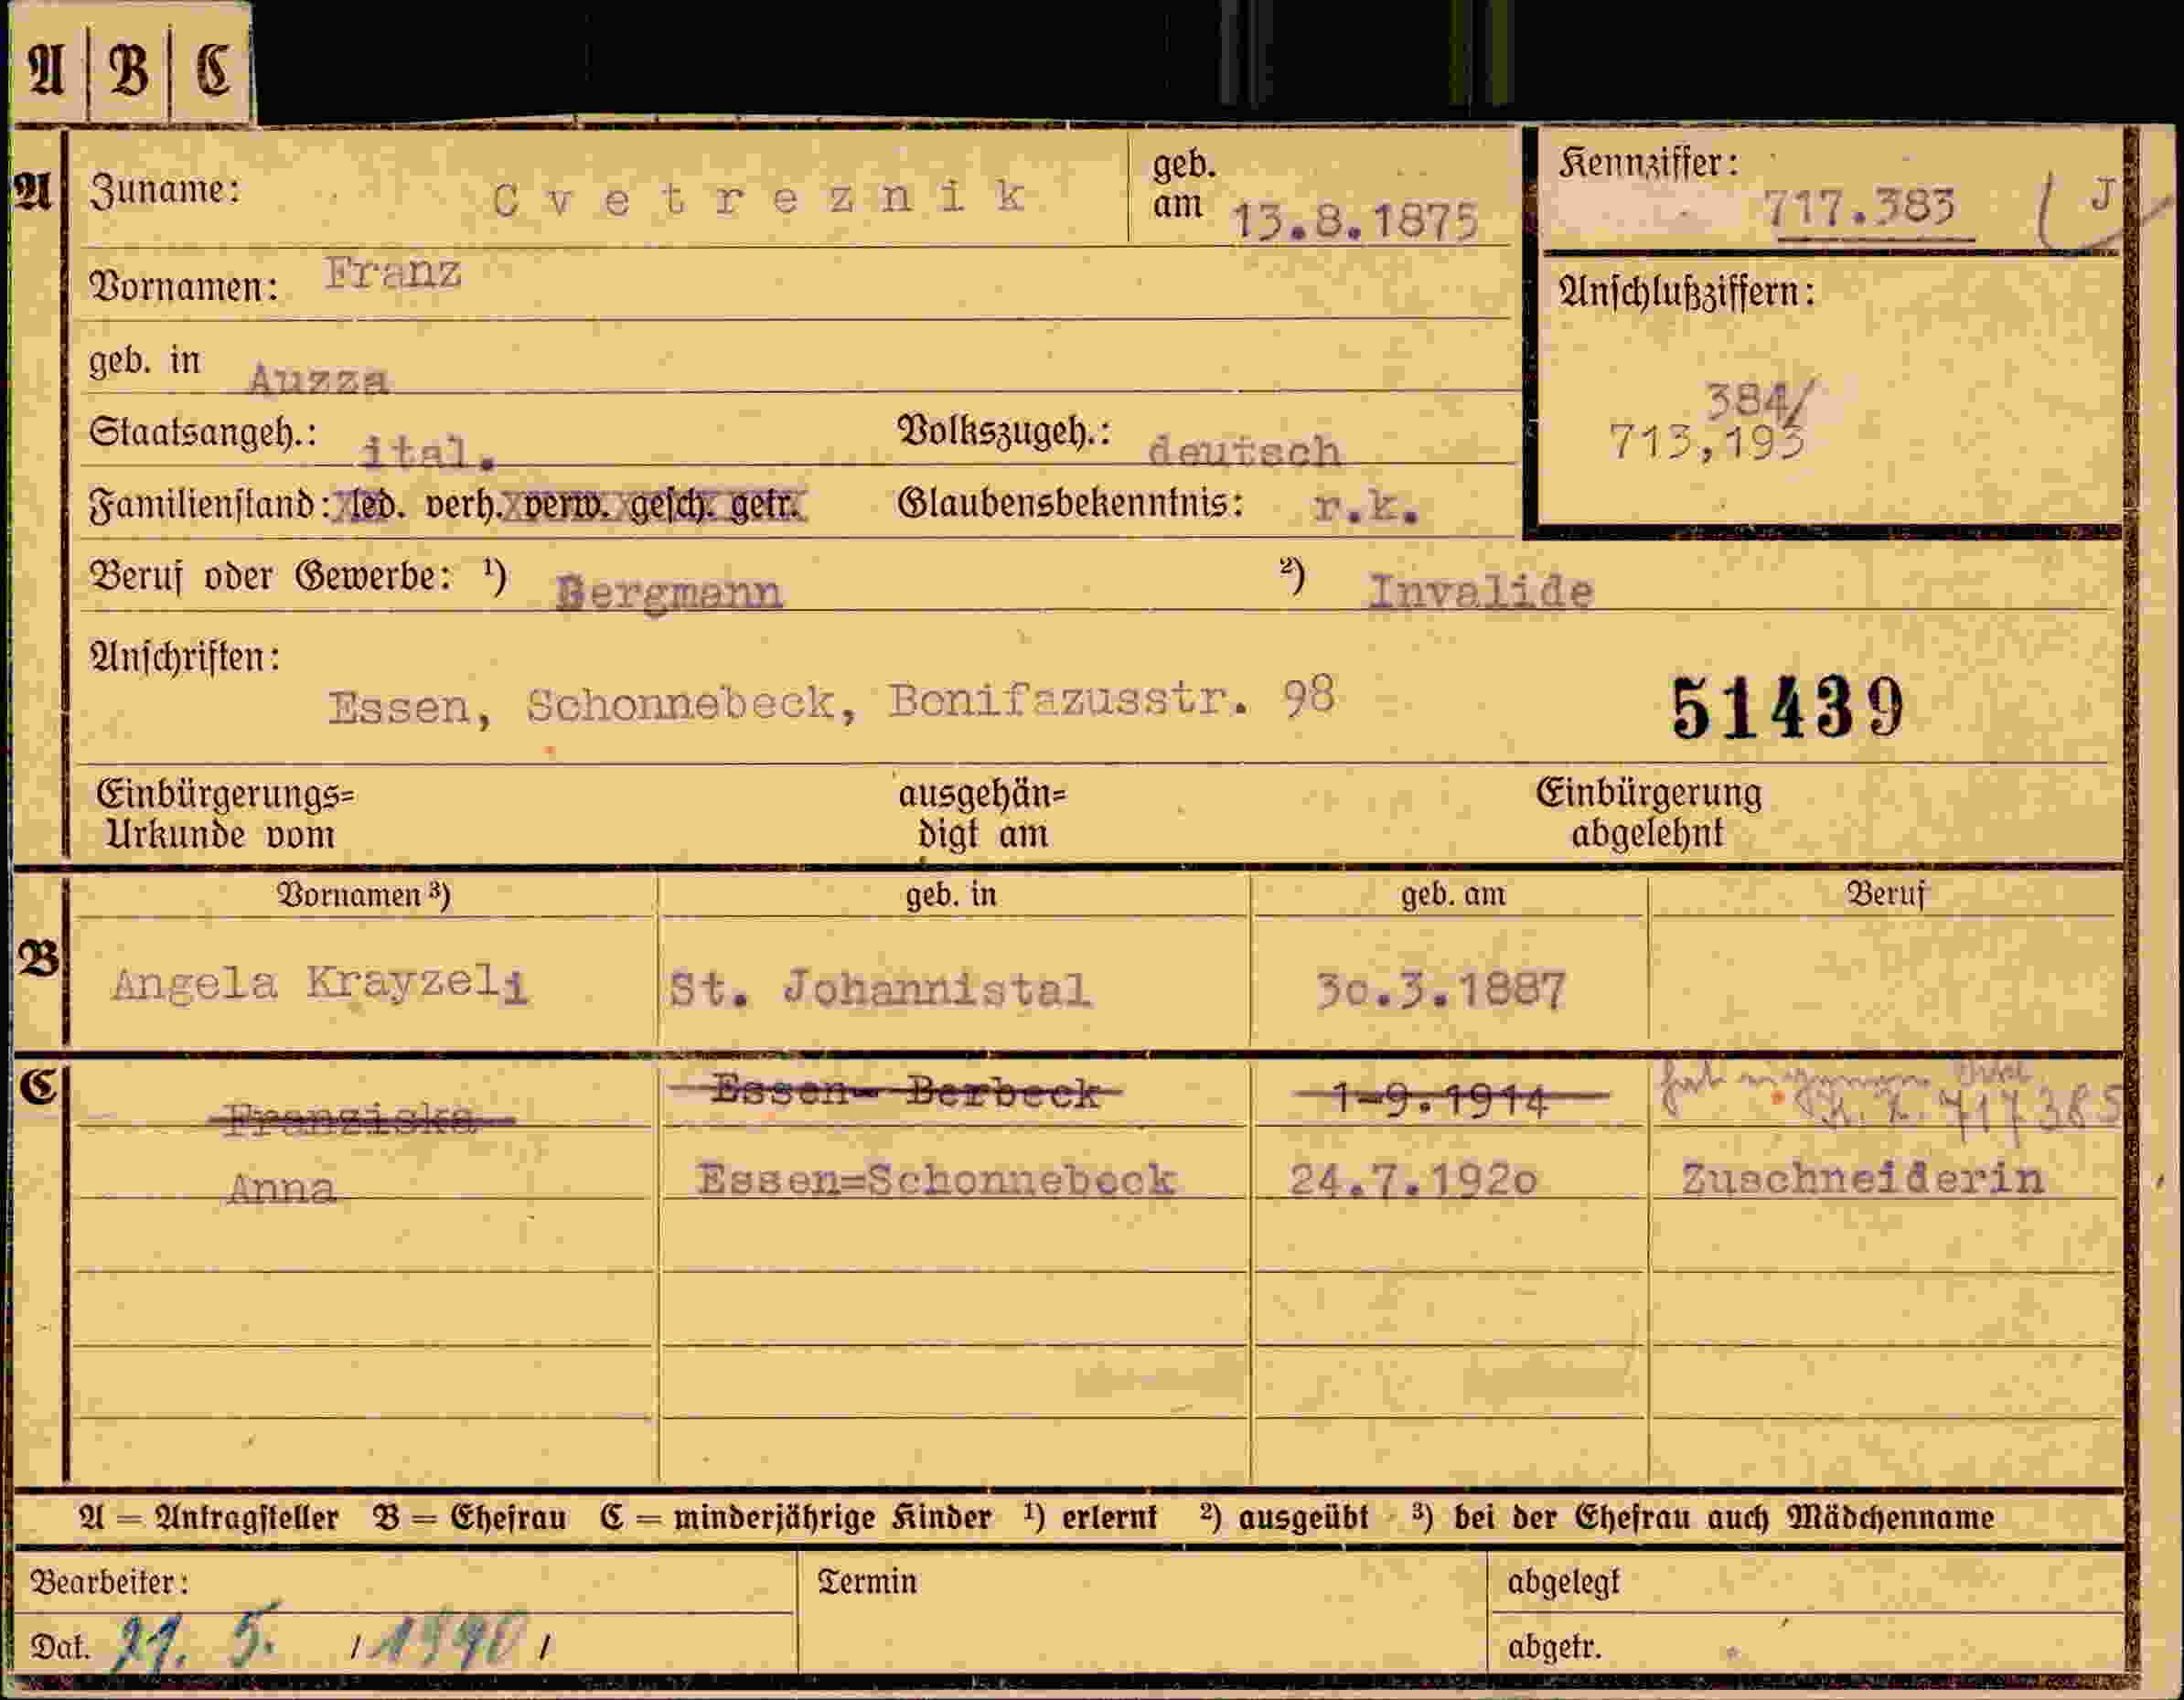 A B C
A Zuname: Cvetreznik geb. am 13.8.1875
Kennziffer: 717.383 J
Vornamen: Franz
Anschlußziffern:
384/
713,193
geb. in Auzza
Staatsangeh.: ital. Volkszugeh.: deutsch
Familienstand: led. verh. verw. gesch. getr. Glaubensbekenntnis: r.k.
Beruf oder Gewerbe: ¹) Bergmann ²) Invalide
Anschriften:
Essen, Schonnebeck, Bonifazusstr. 98
51439
Einbürgerungs= Urkunde vom ausgehän= digt am Einbürgerung abgelehnt
Vornamen ³) geb. in geb. am Beruf
B Angela Krayzeli St. Johannistal 30.3.1887
C Franziska Essen- Berbeck 1-9.1914 K. Z. 717385
Anna Essen=Schonnebeck 24.7.1920 Zuschneiderin
A = Antragsteller B = Ehefrau C = minderjährige Kinder ¹) erlernt ²) ausgeübt ³) bei der Ehefrau auch Mädchenname
Bearbeiter: Termin abgelegt
Dat. 21. 5. /1940/ abgetr.